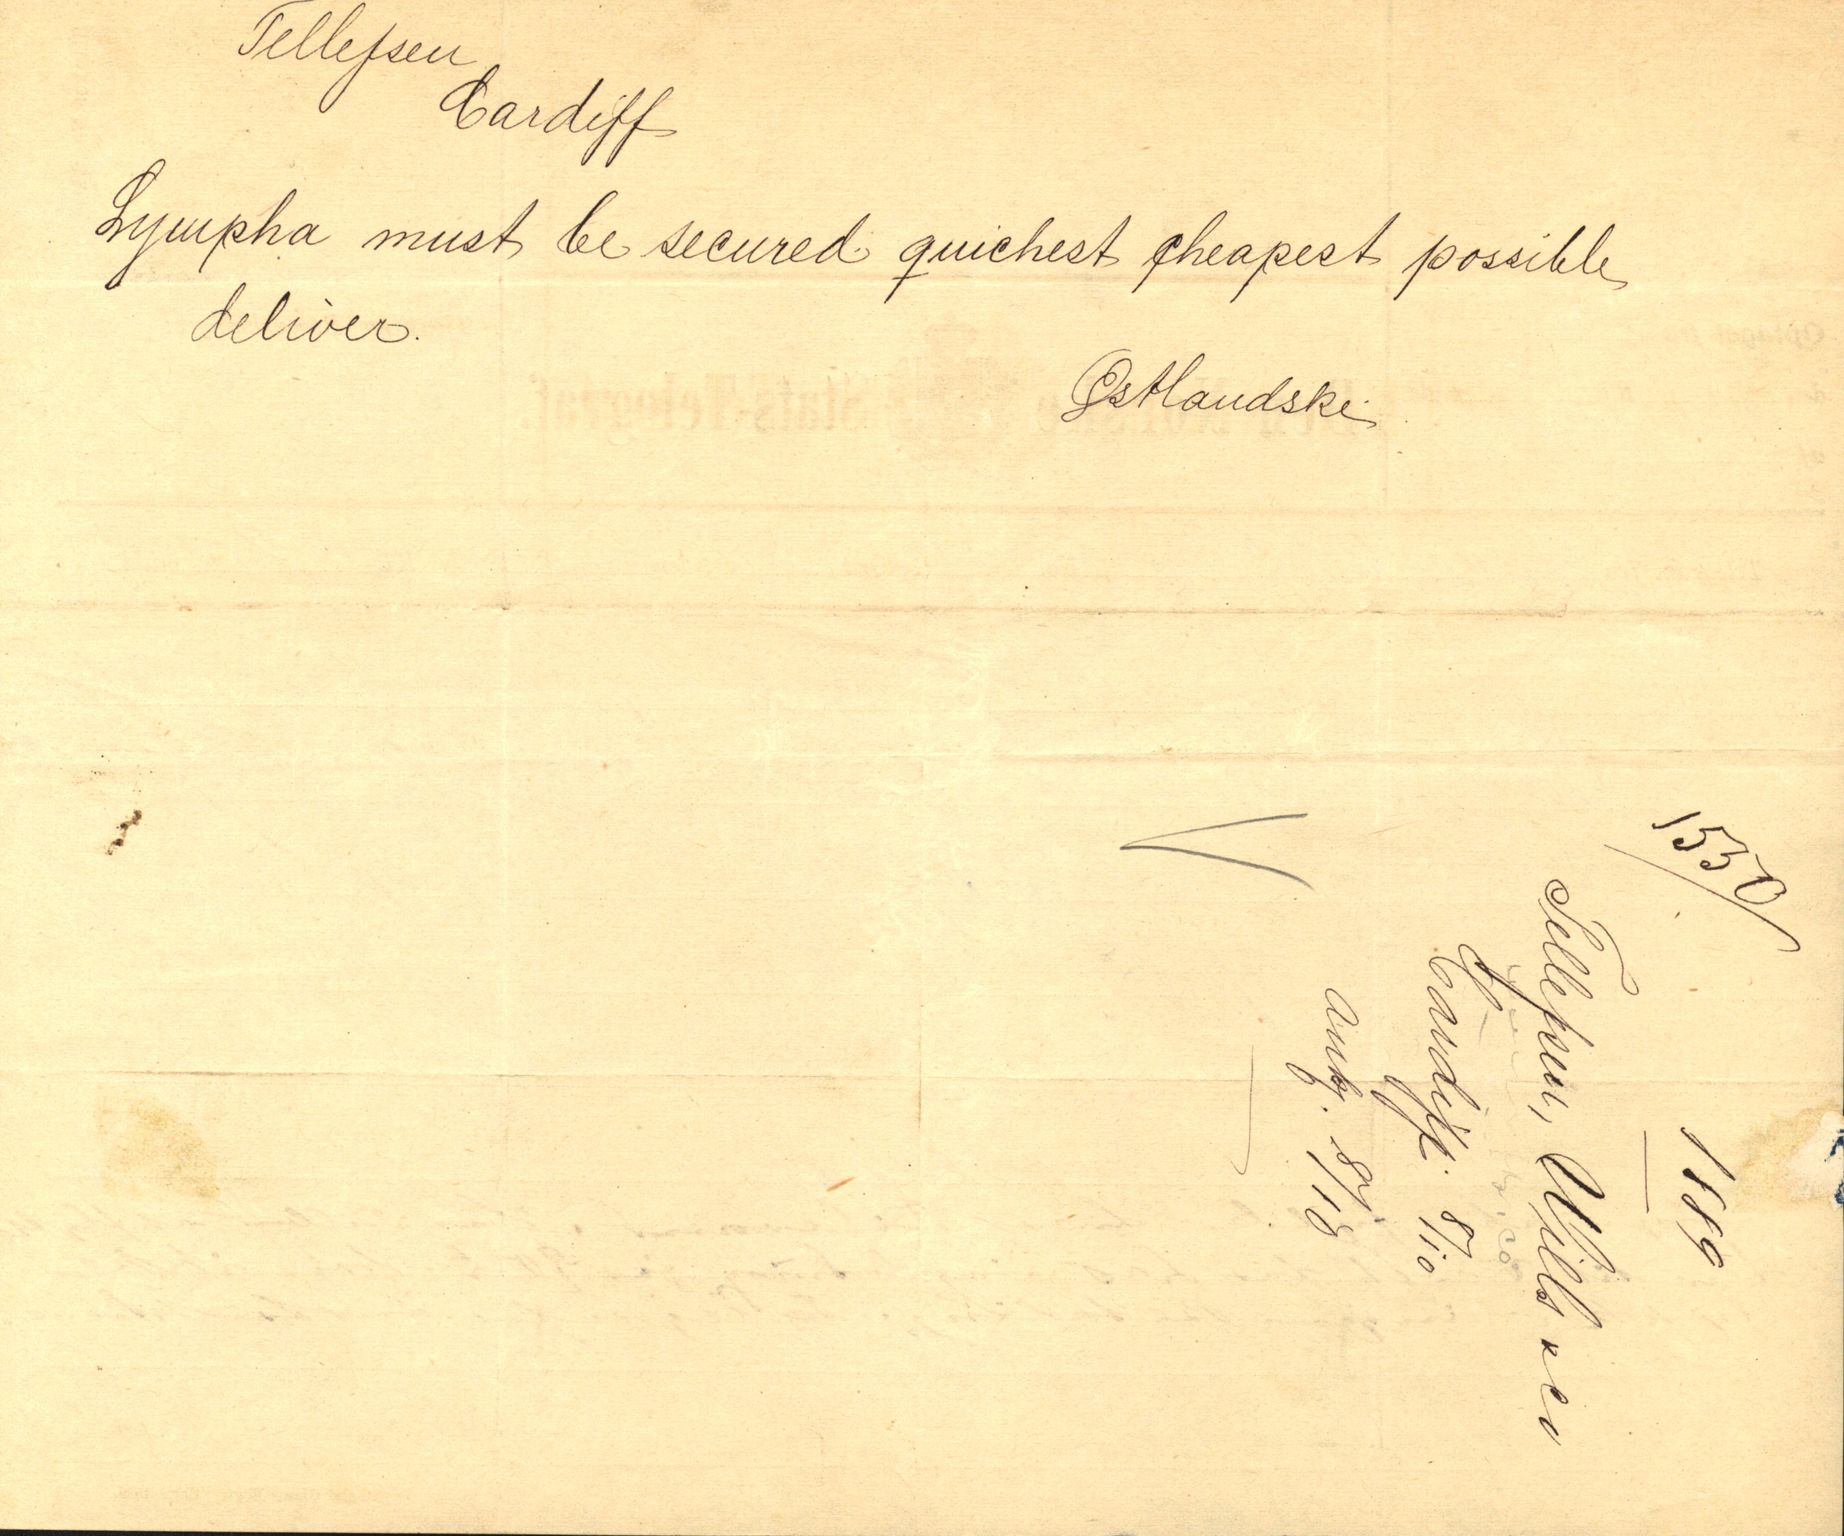 Tellefsen
Cardiff
Lympha must be secured quichest cheapest possible
deliver.
Østlandske
1550
1889
Tellefsen, Wills & Co
Cardiff. 8/10
Ank. 8/10